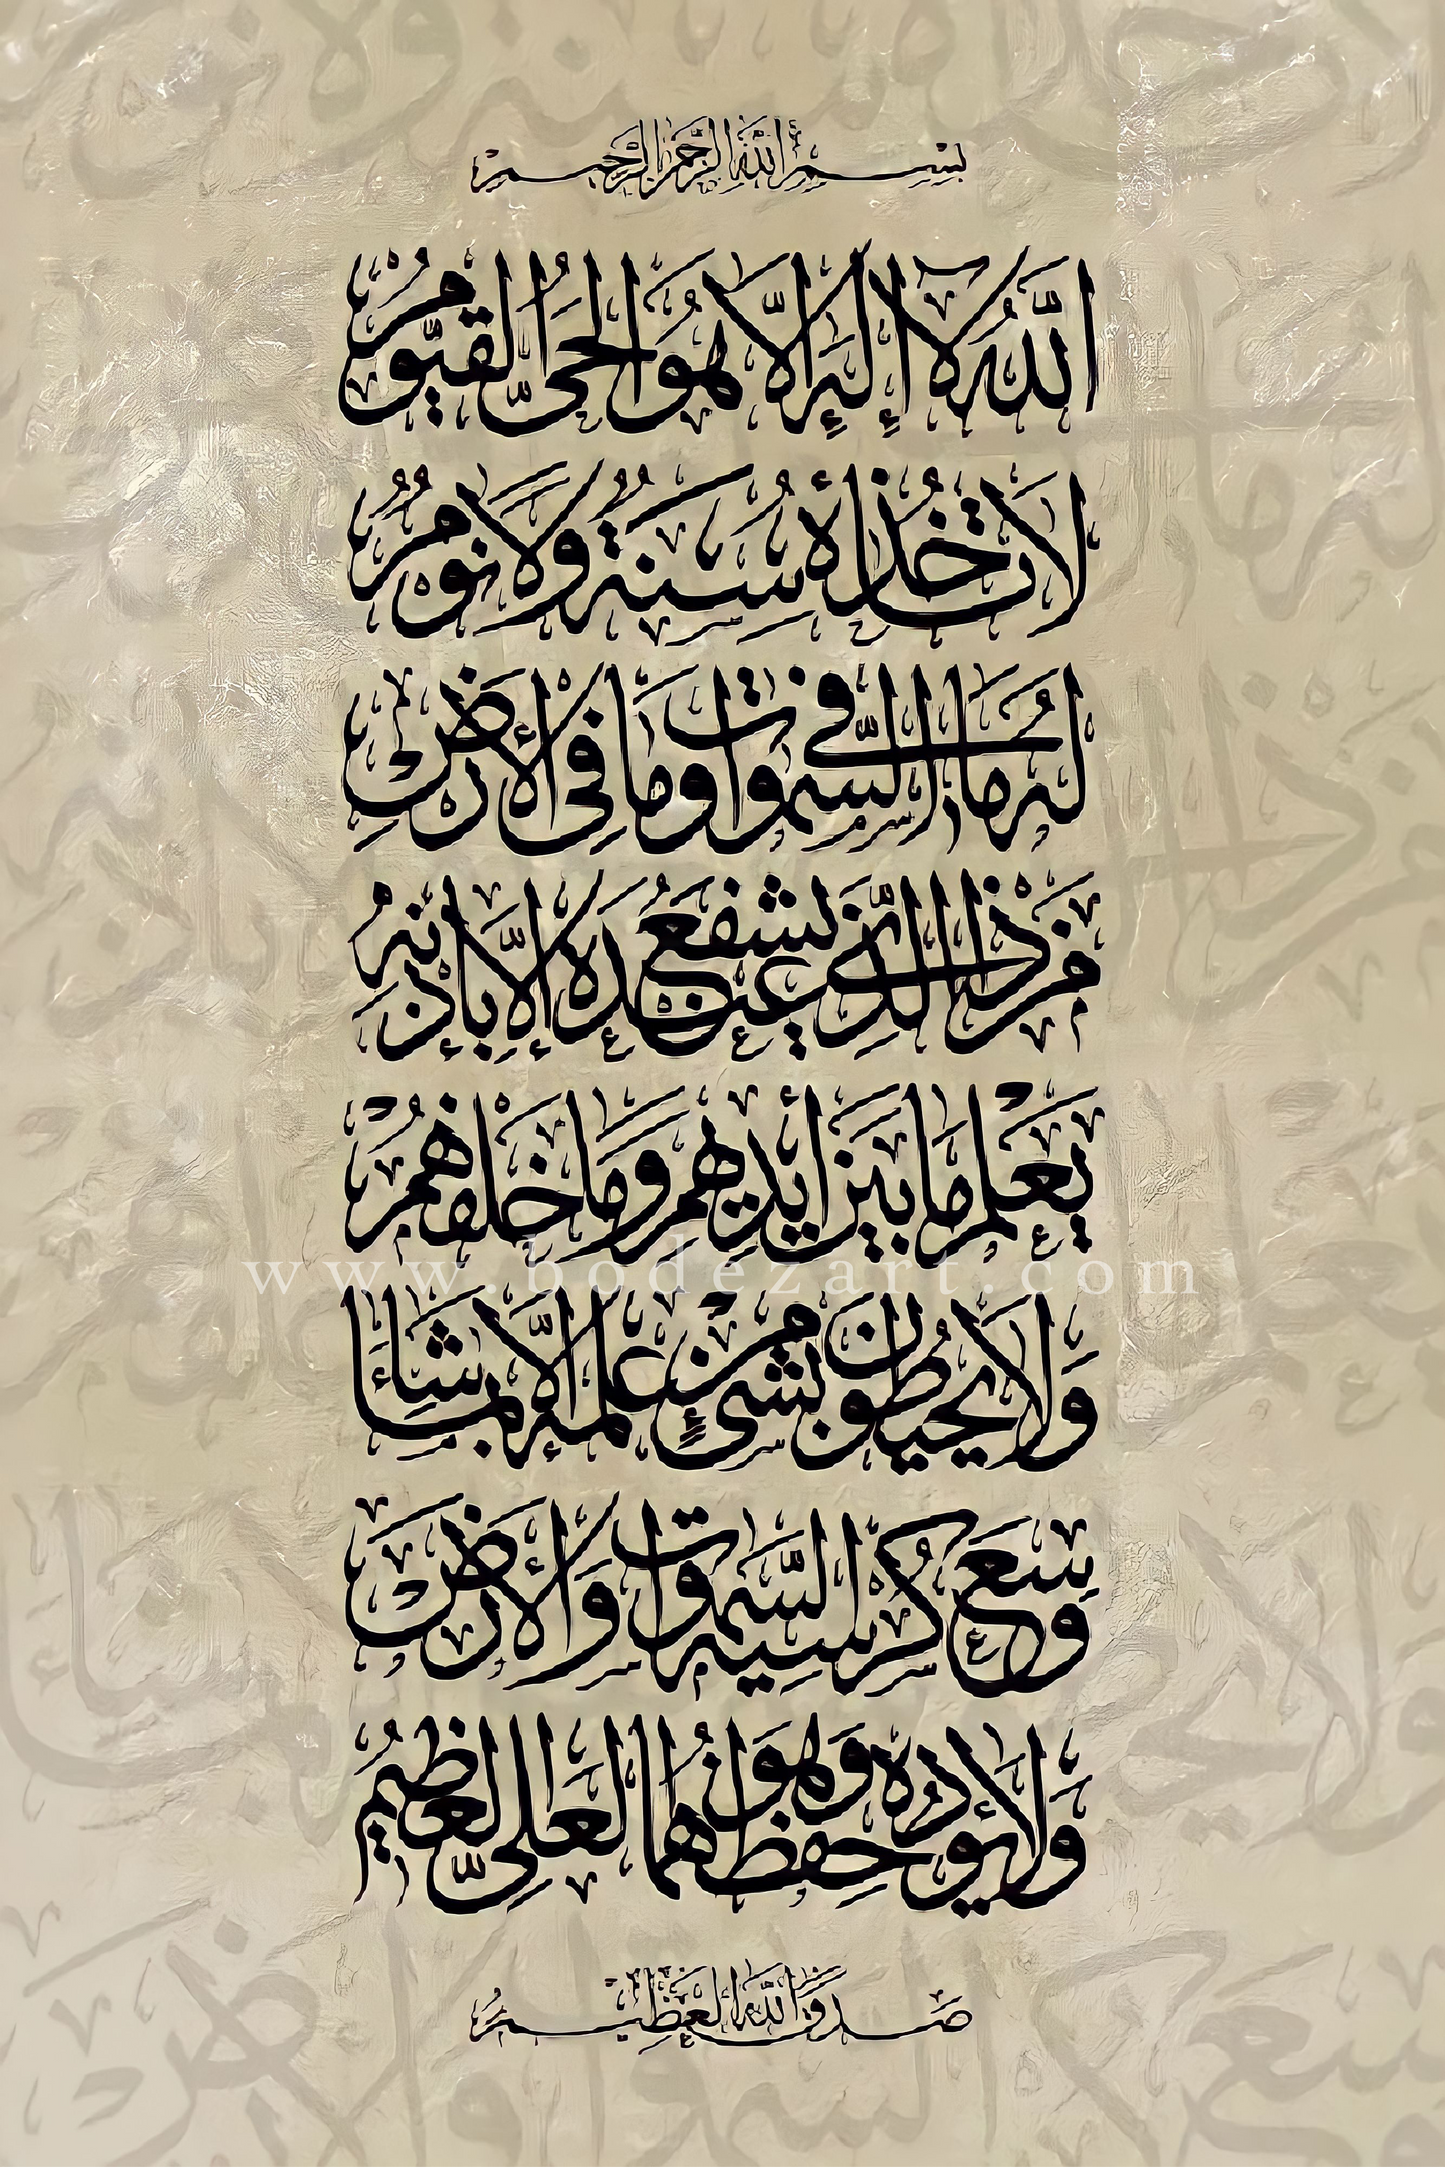 بِسْمِ اللَّهِ الرَّحْمَٰنِ الرَّحِيمِ
اللَّهُ لَا إِلَٰهَ إِلَّا هُوَ الْحَيُّ الْقَيُّومُ
لَا تَأْخُذُهُ سِنَةٌ وَلَا نَوْمٌ
لَهُ مَا فِي السَّمَٰوَاتِ وَمَا فِي الْأَرْضِ
مَنْ ذَا الَّذِي يَشْفَعُ عِنْدَهُ إِلَّا بِإِذْنِهِ
يَعْلَمُ مَا بَيْنَ أَيْدِيهِمْ وَمَا خَلْفَهُمْ
www.bodezart.com
وَلَا يُحِيطُونَ بِشَيْءٍ مِنْ عِلْمِهِ إِلَّا بِمَا شَاءَ
وَسِعَ كُرْسِيُّهُ السَّمَٰوَاتِ وَالْأَرْضَ
وَلَا يَئُودُهُ حِفْظُهُمَا وَهُوَ الْعَلِيُّ الْعَظِيمُ
صَدَقَ اللَّهُ الْعَظِيمُ